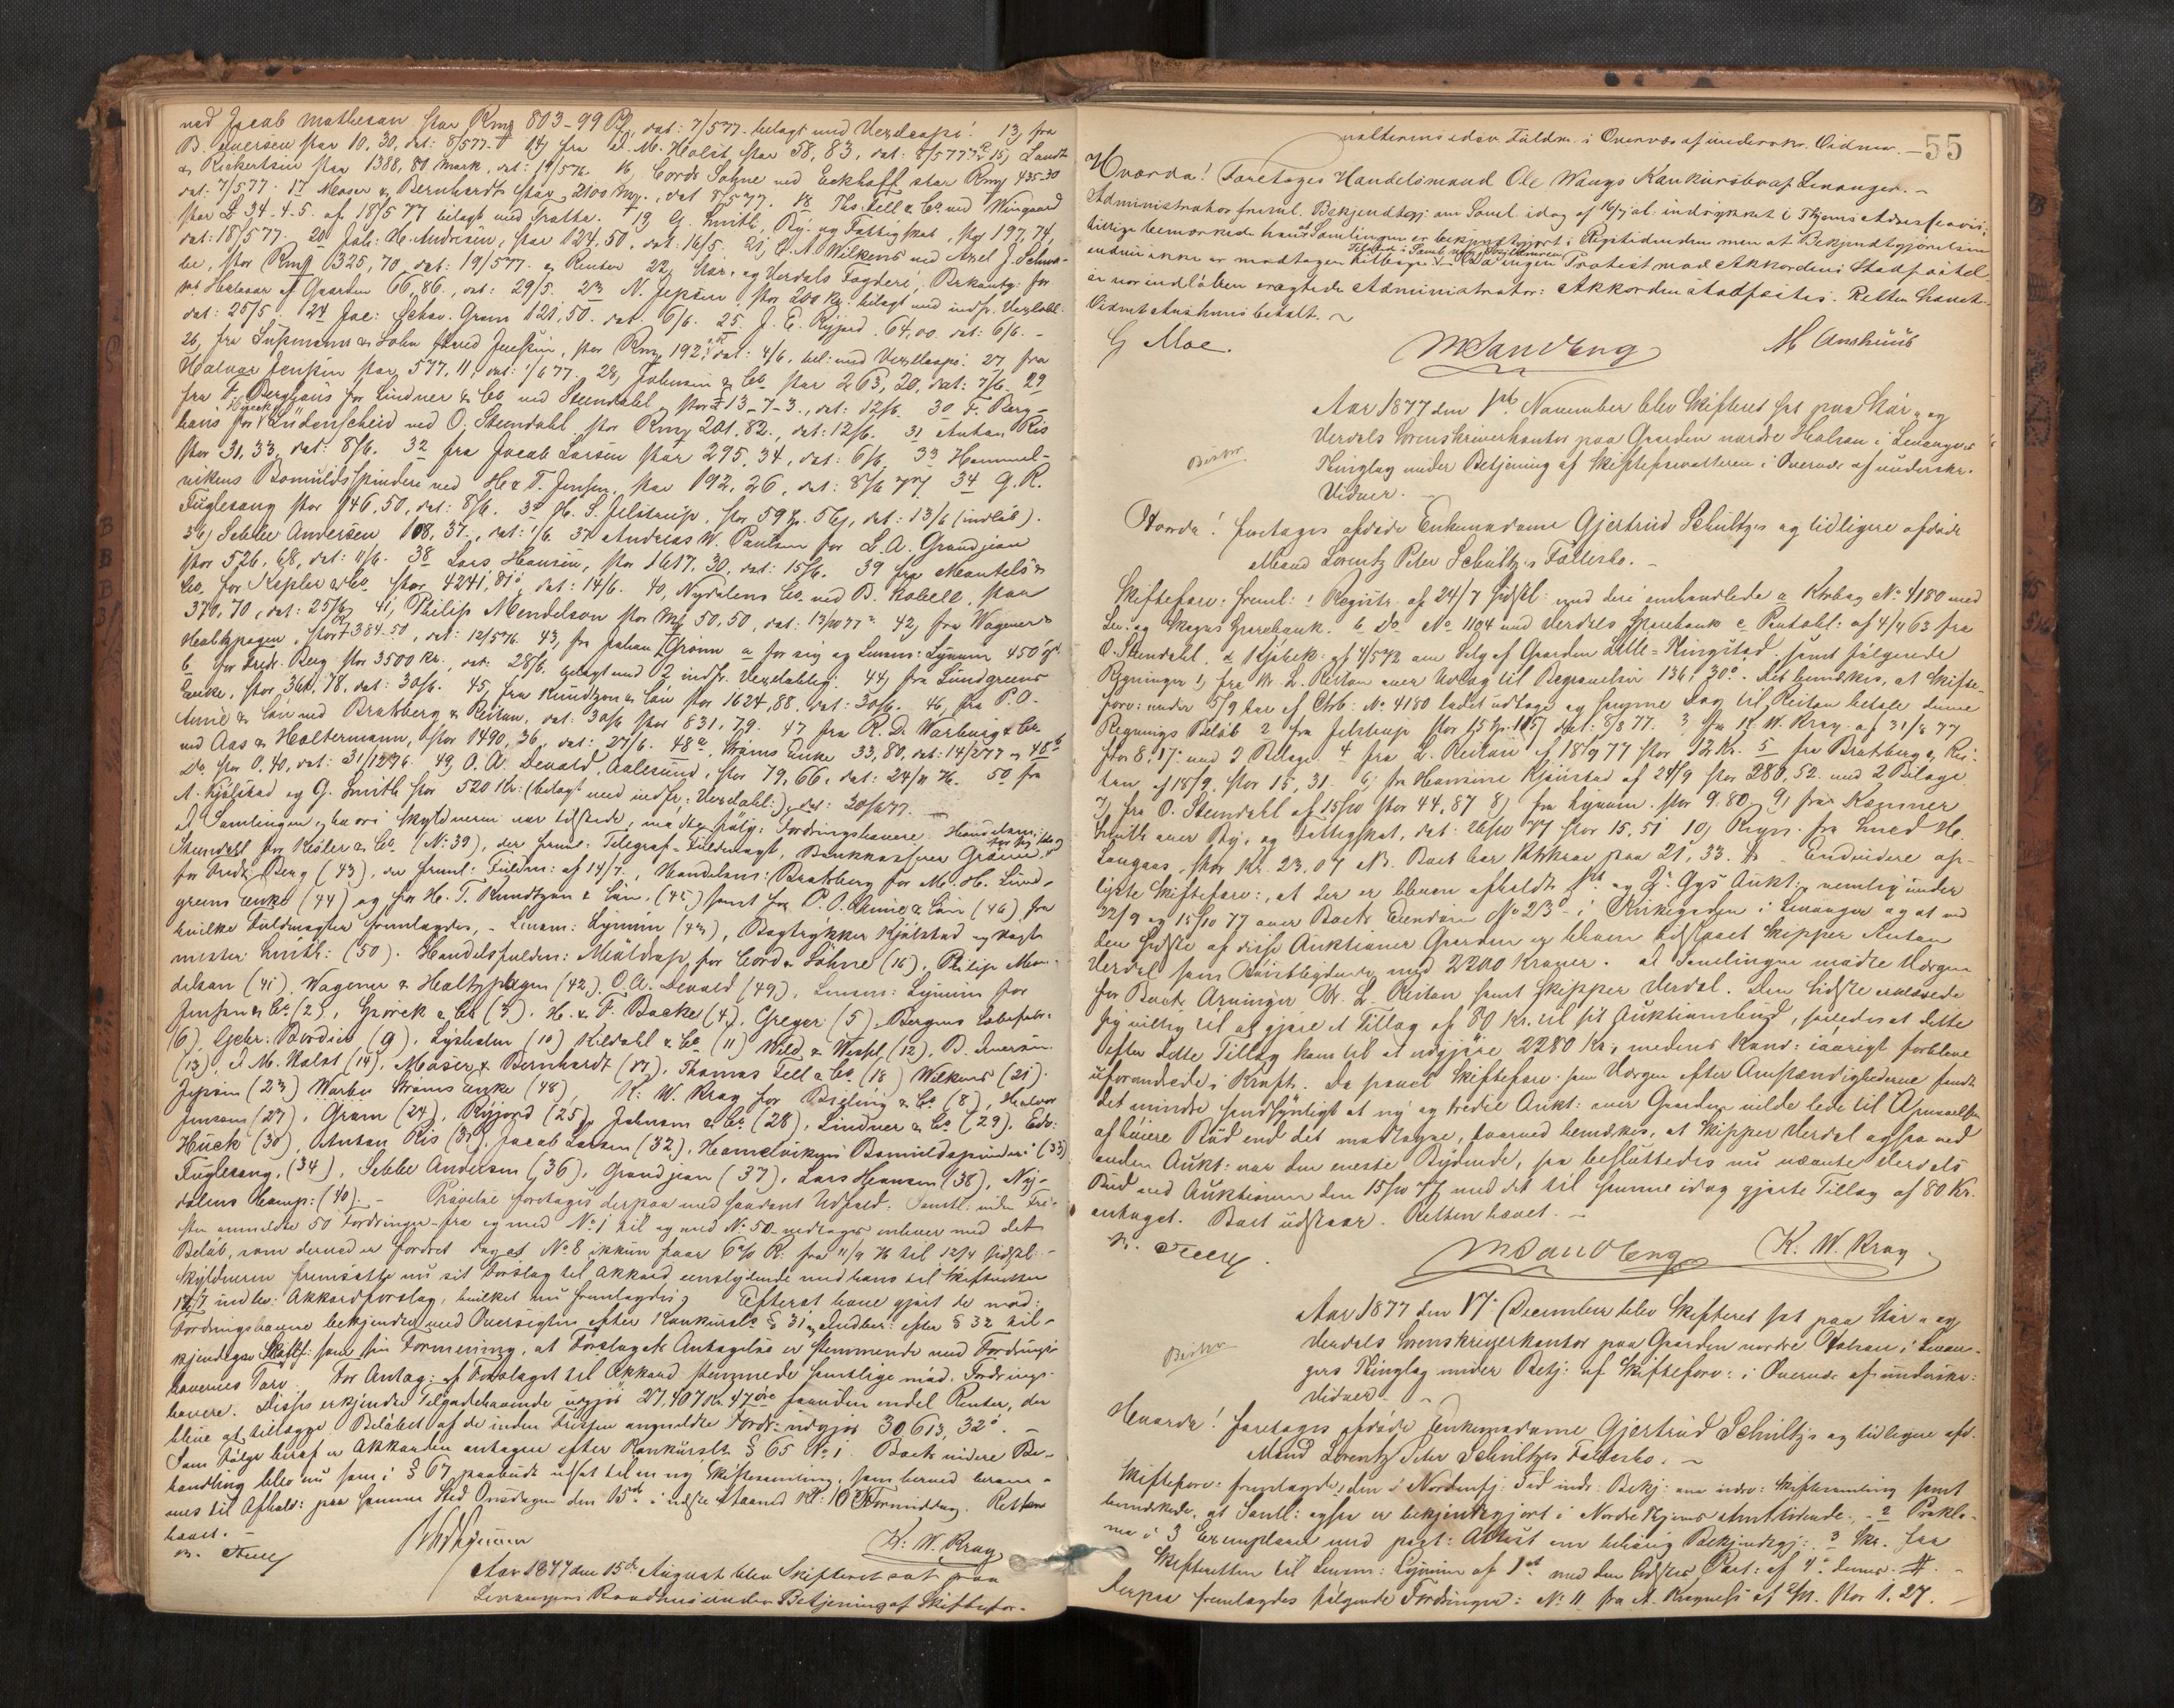 ved Jacob Matheson stor Rmg 803-99 Pf, dat: 7/5 77. belagt med Vexelcopi. 13, fra
B. Iversen stor 10,30, dat: 8/5 77. 14, fra E. M. Holst stor 58,83, dat: 8/5 77. 15, Lundt
& Rickertsen stor 1388,80 Mark, dat: 19/5 76. 16, Cords Søhne ved Eckhoff stor Rmg 435.30
dat: 7/5 77. 17 Moser & Bernhardt stor 2100 Mg., dat 8/5 77. 18 Ths. Fell & Co ved Wingaard
stor £ 34-4-5. af 18/5 77 bilagt med Tratta. 19 G. Smith, By- og Fattigskat, stor 197,74,
dat: 18/5 77. 20 Joh: H. Andersen, stor 124,50, dat: 16/5. 21, C. A. Wilkens ved Axel J. Schou-
be, stor Rmg 1325,70 dat: 19/5 77. og Renter 22, Stør- og Verdals Fogderi, Bekostg: for
 Halsaar af Gaarden 66,86, dat: 29/5. 23 N. Jepsen, stor 200 Kr. bilagt med indfr. Vexelobl.
dat: 25/5. 24 Joc: Schav. Gram 121,50. dat 6/6. 25. J. E. Ryjord. 64,00 dat: 6/6. -
26, fra Süsmann & Sohn ved Jenssen, stor Rmg 192, dat: 4/6. bel: med Vexelcopi. 27 fra
Halvor Jensen stor 577,11, dat: 1/6 77. 28, Johnsen & Co stor 263,20, dat: 7/6. 29
fra F. Berghaus for Lindner & Co ved Steendahl, stor £ 13-7-3., dat: 12/6. 30 F. Berg-
haus for Hueck Lüdenscheid ved O. Steendahl stor Rmg 201.82., dat: 12/6. 31 Anton Ris
stor 31,33, dat: 8/6. 32 fra Jacob Larsen stor 295,34, dat: 6/6. 33 Hammel-
vikens Bomuldsspinderi ved H & T. Jensen, stor 192,26, dat: 8/6 77. 34 G. R.
Fuglesang stor 146,50, dat: 8/6. 35 H. S. Jelstrup, stor 59 Kr. 56, dat: 13/6 (indløb).
36, Sebbe Andersen 108,37., dat: 1/6. 37 Andreas W. Paulsen for L. A. Grandjean
stor 526,68, dat: 11/6. 38 Lars Hansen, stor 1617,30, dat: 15/6. 39 fra Mantels &
Co. for Kepler & Co. stor 4241,81, dat: 14/6. 40, Nydalens Co. ved B. Kobell, stor
370,70, dat: 25/6. 41, Philip Mendelson stor Mg 50,50, dat: 13/10 77. 42, fra Wagener &
Healtzpagen, stor £ 384.50, dat: 12/5 76. 43, fra Johan Grønn a for sig og Lensm: Lynum 450
b for Fredr. Berg stor 3500 Kr., dat: 28/6. belagt med 2 indfr. Vexelobligj. 44, fra Lundgreens
Enke, stor 364,78, dat: 30/6. 45, fra Knudtzon & Søn stor 1624,88. dat: 30/6. 46, fra P. O.
Aune & Søn ved Bratberg & Reitan, dat: 30/6 stor 831,79. 47 fra R. D. Warburg & Co.
ved Aas & Haltermann, stor 1490,36, dat: 27/6. 48 a. Strøms Enke 33,80, dat: 14/2 77 og 48 b
Do. stor 0,40, dat: 31/12 76. 49, O. A. Devold, Aalesund, stor 79,66, dat: 24/11 76. 50 fra
A. Kjølstad og G. Smith stor 520 Kr: (belagt med indfr: Vexelobl:), dat: 30/6 77.
I Samlingen, hvori Skyldneren var tilstede, mødte følg: Fordringshavere. Handelsm:
Steendahl for Kesler & Co. (No 39), der freml: Telegraf-Fuldmagt, Bankkasserer Grønn
for Fredr. Berg (43), der freml: Fuldm: af 14/7., Handelsm: Bratberg for M. H. Lund-
greens Enke (44) og for H. T. Knudtzon & Søn, (45) samt for P. O. Aune & Søn (46) fra
hvilke Fuldmagter fremlagdes, - Lensm: Lynum (43), Bogtrykker Kjølstad og Vagt-
mester Smith: (50). Handelsfuldm: Meldrup for Cords Søhne (16), Philip Men-
delson (41), Wagener & Healtzpagen (42), O. A. Devold (49), Lensm: Lynum for
Jensen & Co. (2), Gjørck & Co (3). H. & F. Backe (4), Greger (5), Bergens Tobaksfabr:
(6), Gebr: Nordin (9), Lysholm (10) Kildahl & Co (11) Wild & Wessel (12), B. Iversen
(13), E. M. Holst (14), Moser & Bernhardt (17), Thomas Fell & Co. (18) Wilkens (21).
Jepsen (23) Warbu Strøms Enke (48), K: W. Krag for Bisling & Co. (8), Halvor
Jensen (27), Gram (24), Ryjord (25), Johnsen & Co. (28), Lindner & Co. (29), Edv:
Hueck (30), Anton Ris (31), Jacob Larsen (32), Hammelvikens Bomuldsspinderi (33)
Fuglesang, (34), Sebbe Andersen (36), Grandjean (37), Lars Hansen (38), Ny-
dalens Comp: (40). - Prøvelse foretoges derpaa med saadant Udfald: Samtl: inden Fri-
sten anmeldte 50 Fordringer fra og med No 1 til og med No 50 vedtages enhver med det
Beløb, som derved er fordret dog at No 8 ikkun faar 6 % R. fra 11/9 76 til 12/4 sidstl: -
Skyldneren fremsatte nu sit Forslag til Akkord, eenslydende med hans til Skifteretten
12/7 indlev: Akkordforslag, hvilket nu fremlagdes. Efterat have gjort de mød:
Fordringshavere bekjendte med Oversigten efter Konkursl. § 31 og Indber: efter § 32 til-
kjendegav Skiftef: som sin Formening, at Forslagets Antagelse er stemmende med Fordrings-
havernes Tarv. For Antag: af Forslaget til Akkord stemmede samtlige mød. Fordrings-
havere. Disses erkjendte Tilgodehavende udgjør 27,407 Kr. 47 øre foruden endel Renter, der
blive at tillægge. Beløbet af de inden Fristen anmeldte Fordr: udgjør 30,613,32 ø. -
Som Følge heraf er Akkorden antagen efter Konkursl. § 65 No. 1. Boets videre Be-
handling blev nu som i § 67 paabudt udsat til en ny Skiftesamling, som herved beram-
mes til Afhold: paa samme Sted Onsdagen den 15de i næste Maaned Kl: 10 Formiddag. Retten
hævet. -
K. W. Krag
Aar 1877 den 15de August blev Skifteret sat paa
Levangers Raadhus under Betjening af Skiftefor-
55
valterens edsv. Fuldm. i Overvær af underskr. Vidner. -
Hvorda! Foretoges Handelsmand Ole Wangs Konkursbo af Levanger. -
Administrator freml. Bekjendtgj: om Saml. idag af 16/7 al. indrykket i Thjems Adresseavis;
tillige bemærkede han at Samlingen er bekjendtgjort i Rigstidenden men at Bekjendtgjørelsen
endnu ikke er modtagen tilbage. Da ingen Protest mod Akkordens Stadfæstel-
se var indløben eragtede Administrator: Akkorden stadfæstes. Retten hævet.
Vidnet Anshuus betalt. ~
G Moe. M Sandveng M Anshuus
Aar 1877 den 1ste November blev Skifteret sat paa Stør- og
Verdals Sorenskriverkontor paa Gaarden nordre Halsan i Levangers
Thinglag under Betjening af Skifteforvalteren i Overvær af underskr.
Vidner. -
Hvorda! foretoges afdøde Enkemadame Gjertrud Schultz's og tidligere afdøde
Mand Lorentz Peter Schultz's Fællesbo. -
Skiftefor: freml: 1 Registr. af 24/7 sidstl: med deri omhandlede a Kvbog No 4180 med
Lev. og Skogns Sparebank. b Do No 1104 med Verdals Sparebank c Pantobl: af 4/4 63 fra
O. Steendahl, d Kjøbek: af 4/5 72 om Salg af Gaarden Lille-Ringstad, samt følgende
Regninger 1, fra W. L. Reitan over Udlæg til Begravelsen 136,30 ø. Det bemærkes, at Skifte-
forv: under 5/9 har af Ctrb: No 4180 ladet udtage og samme Dag til Reitan betale denne
Regnings Beløb 2 fra Jelstrup stor 15 Kr. 105, dat: 8/8 77. 3, fra K. W. Krag. af 31/8 77
stor 8,17. med 2 Bilage. 4 fra L. Reitan af 18/9 77 stor 12 Kr. 5 fra Bratberg & Rei-
tan af 18/9 stor 15,31. 6, fra Hansine Kjønstad af 24/9 stor 280,52. med 2 Bilage
7, fra O. Steendahl af 15/10 stor 44,87 8, fra Lynum stor 9.80. 9, fra Kæmner
Smith over By- og Fattigskat, dat: 26/10 77 stor 15,51 10, Regn. fra Smed H.
Langaas, stor Kr. 23.07 NB. Boet har Modkrav paa 21,33. - Endvidere op-
lyste Skiftefor:, at der er bleven afholdt 1ste og 2. Gjs Aukt: nemlig under
22/9 og 15/10 77 over Boets Eiendom No 23 i Kirkegaden i Levanger og at ved
den sidste af disse Auktioner Gaarden er bleven tilslaaet Skipper Anton
Verdal som Høistbydende med 2200 Kroner. I Samlingen mødte Værgen
for Boets Arvinger W. L. Reitan samt Skipper Verdal. Den sidste erklærede
sig villig til at gjøre et Tillæg af 80 Kr. til sit Auktionsbud, saaledes at dette
efter dette Tillæg kom til at udgjøre 2280 Kr., medens Kond: iøvrigt forbleve
uforandrede i Kraft. Da saavel Skiftefor: som Værgen efter Omstændighederne fandt
det mindre sandsynligt at ny og tredie Aukt: over Gaarden vilde lede til Opnaaelse
af høiere Bud end det modtagne, hvorved bemærkes, at Skipper Verdal ogsaa ved
anden Aukt: var den eneste Bydende, saa besluttedes nu nævnte Verdals
Bud ved Auktionen den 15/10 77 med det til samme idag gjorte Tillæg af 80 Kr.
antaget. Boet udstaar. Retten hævet. -
M Sandveng K. W. Krag
Aar 1877 den 17. December blev Skifteret sat paa Stør- og
Verdals Sorenskriverkontor paa Gaarden nordre Halsan i Levan-
gers Thinglag under Betj: af Skifteforv: i Overvær af underskr:
Vidner. -
Hvorda! foretoges afdøde Enkemadame Gjertrud Schultz's og tidligere afd.
Mand Lorentz Peter Schultzes Fællesbo. ~
Skiftefor: fremlagde 1 den i Nordenfj: Tid. indr: Bekj: om nærv: Skiftesamling samt
bemærkede, at Saml: ogsaa er bekjendtgjort i Nordre Thjems Amtstidende, - 2 Prokla-
ma i 3 Exemplarer med paat: Attest om behørig Bekjendtgj: 3 Skr. fra
Skifteretten til Lensm: Lynum af 1ste med den sidstes Paat: af 4. ds.
Derpaa fremlagdes følgende Fordringer: No 11 fra A. Kragness af 2/11. stor 1.27. -